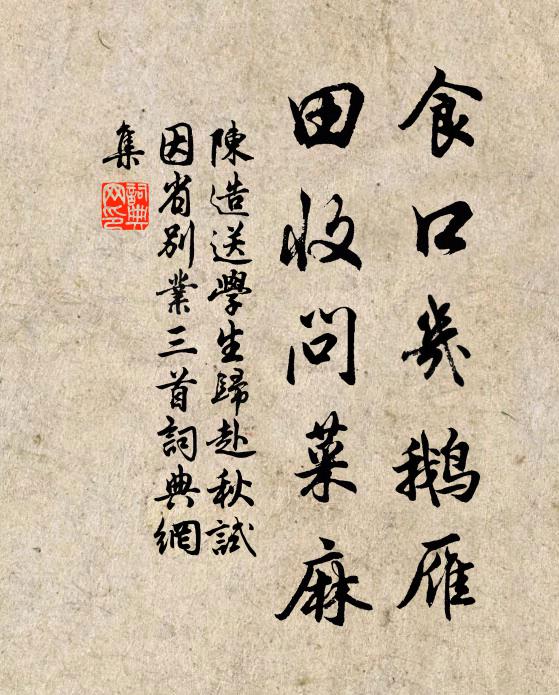 食口幾鵝雁
田收問菜麻
陳造送學生歸赴秋試
因省別業三首詞典網
集
詞典
网印